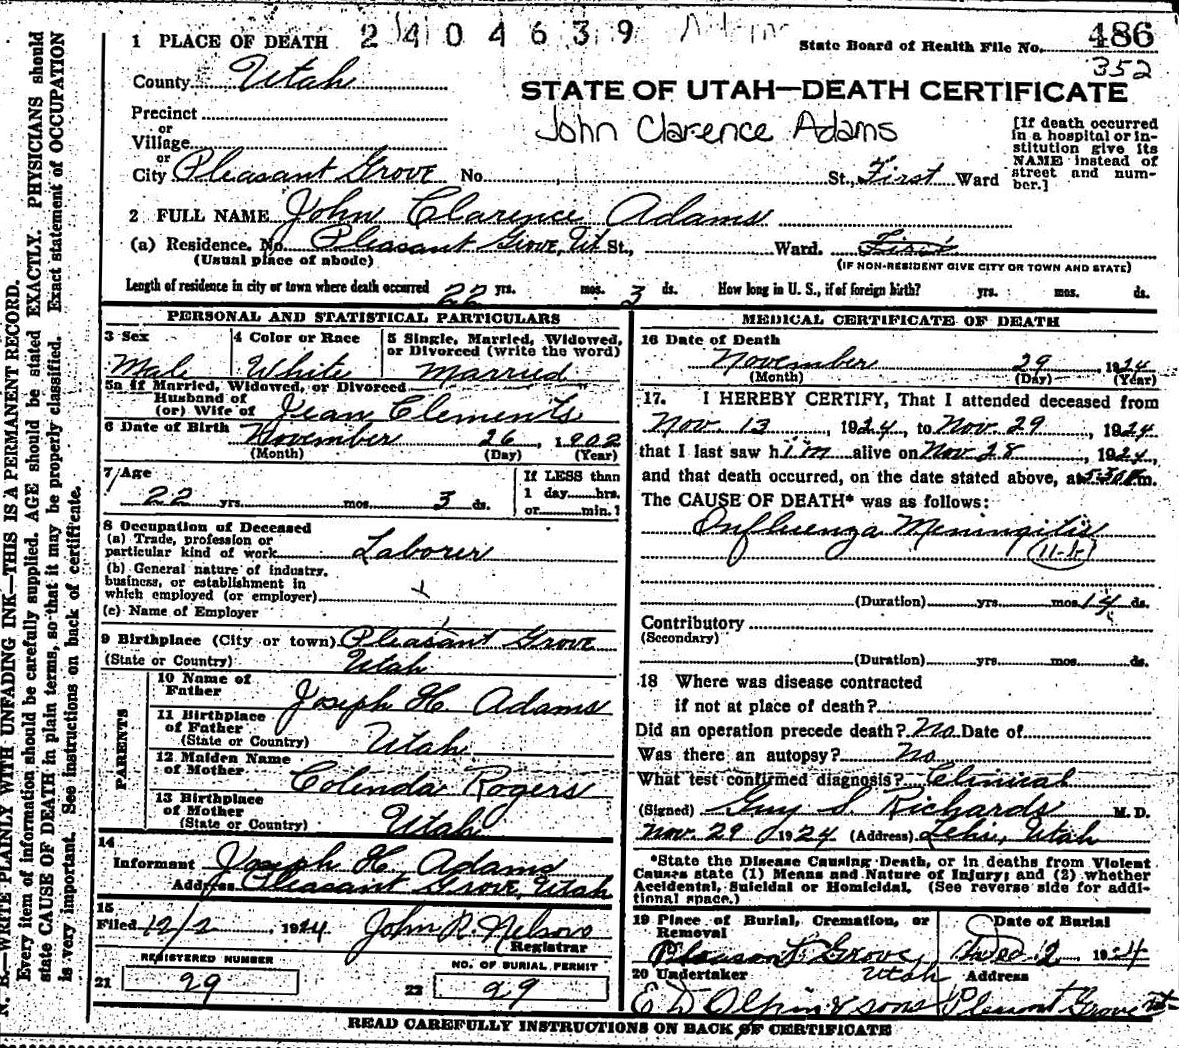 1 PLACE OF DEATH 2404639
State Board of Health File No. 486
352
County Utah
STATE OF UTAH—DEATH CERTIFICATE
John Clarence Adams
Precinct
or
Village
or
City Pleasant Grove No. St., First Ward
[If death occurred in a hospital or institution give its NAME instead of street and number.]
2 FULL NAME John Clarence Adams
(a) Residence. No. Pleasant Grove, Ut. St., Ward. First
(Usual place of abode) (IF NON-RESIDENT GIVE CITY OR TOWN AND STATE)
Length of residence in city or town where death occurred 22 yrs. mos. 3 ds. How long in U. S., if of foreign birth? yrs. mos. ds.
PERSONAL AND STATISTICAL PARTICULARS
3 Sex Male
4 Color or Race White
5 Single, Married, Widowed, or Divorced (write the word) Married
5a If Married, Widowed, or Divorced
Husband of
(or) Wife of Jean Clements
6 Date of Birth November 26, 1902
(Month) (Day) (Year)
7 Age
22 yrs. mos. 3 ds.
If LESS than
1 day hrs.
or min.1
8 Occupation of Deceased
(a) Trade, profession or
particular kind of work Laborer
(b) General nature of industry,
business, or establishment in
which employed (or employer)
(c) Name of Employer
9 Birthplace (City or town) Pleasant Grove
(State or Country) Utah
PARENTS
10 Name of
Father Joseph H. Adams
11 Birthplace
of Father
(State or Country) Utah
12 Maiden Name
of Mother Colinda Rogers
13 Birthplace
of Mother
(State or Country) Utah
14
Informant Joseph H. Adams
Address Pleasant Grove, Utah
15
Filed 12/2, 1924 John R. Nelson
Registrar
REGISTERED NUMBER
21 29
NO. OF BURIAL PERMIT
22 29
MEDICAL CERTIFICATE OF DEATH
16 Date of Death
November 29, 1924
(Month) (Day) (Year)
17. I HEREBY CERTIFY, That I attended deceased from
Nov. 13, 1924, to Nov. 29, 1924
that I last saw him alive on Nov. 28, 1924,
and that death occurred, on the date stated above, at 5:30 m.
The CAUSE OF DEATH* was as follows:
Influenza Meningitis
(Duration) yrs. mos. 14 ds.
Contributory
(Secondary)
(Duration) yrs. mos. ds.
18 Where was disease contracted
if not at place of death?
Did an operation precede death? No. Date of
Was there an autopsy? No
What test confirmed diagnosis? Clinical
(Signed) Guy S. Richards M. D.
Nov. 29 1924 (Address) Lehi, Utah
*State the Disease Causing Death, or in deaths from Violent
Causes state (1) Means and Nature of Injury; and (2) whether
Accidental, Suicidal or Homicidal. (See reverse side for addi-
tional space.)
19 Place of Burial, Cremation, or Removal
Pleasant Grove, Utah
Date of Burial
Dec 2 1924
20 Undertaker
E D Olpin & sons
Address
Pleasant Grove Ut
READ CAREFULLY INSTRUCTIONS ON BACK OF CERTIFICATE
N. B.—WRITE PLAINLY WITH UNFADING INK—THIS IS A PERMANENT RECORD.
Every item of information should be carefully supplied. AGE should be stated EXACTLY. PHYSICIANS should
state CAUSE OF DEATH in plain terms, so that it may be properly classified. Exact statement of OCCUPATION
is very important. See instructions on back of certificate.